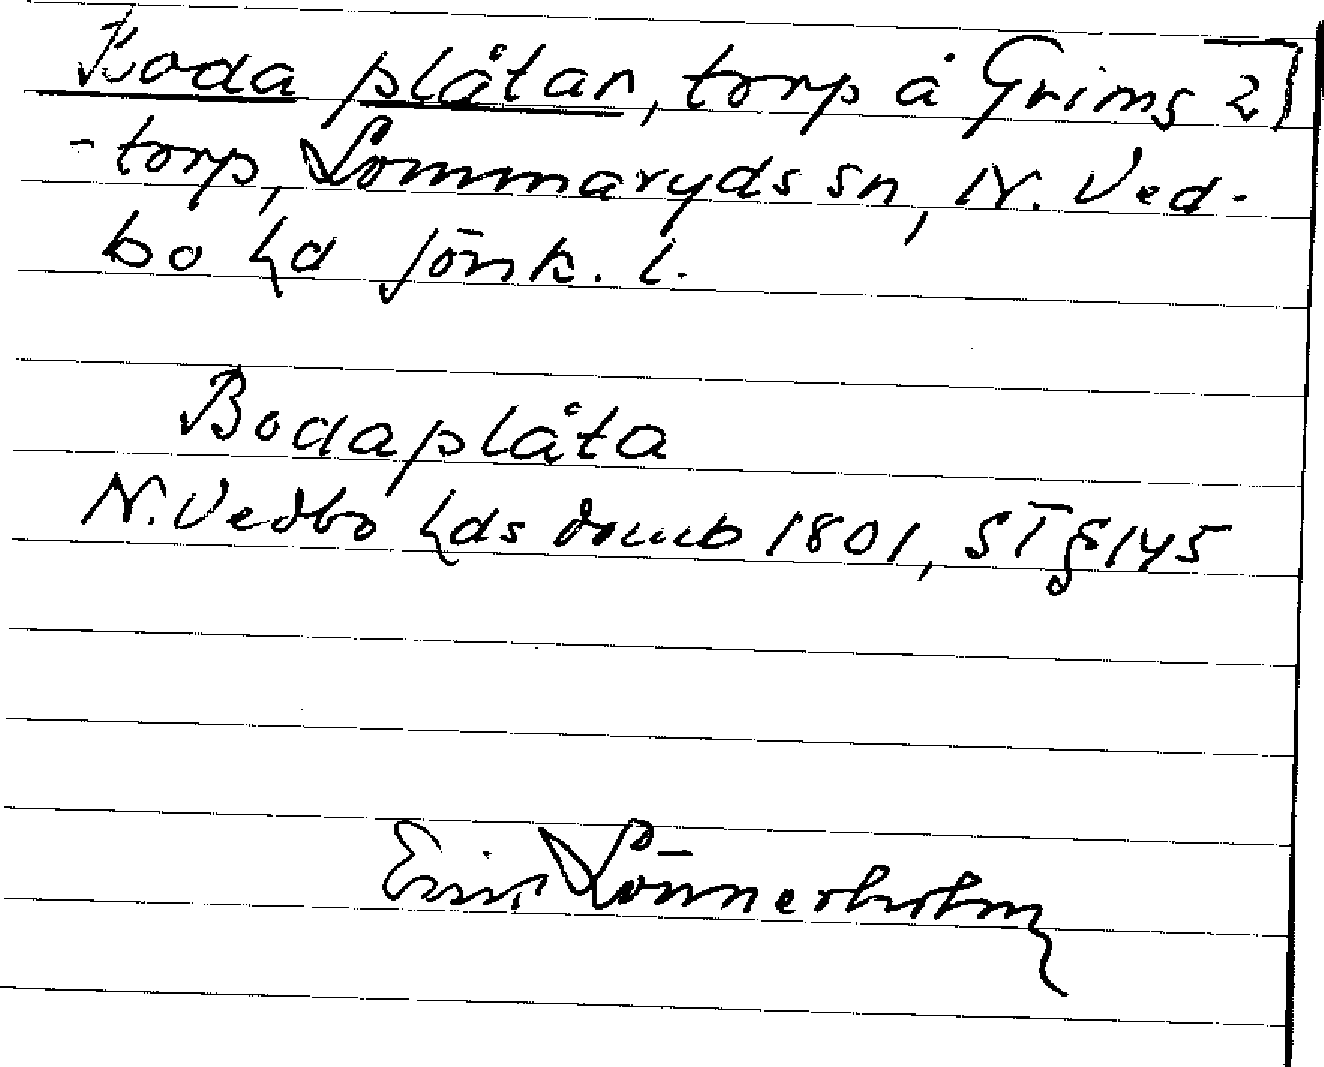 Boda plåtan, torp å Grims 2]
-torp, Lommaryds sn, N. Ved-
bo hd Jönk. l.
Bodaplåta
N. Vedbo hds domb 1801, ST § 145
Lönnerholm